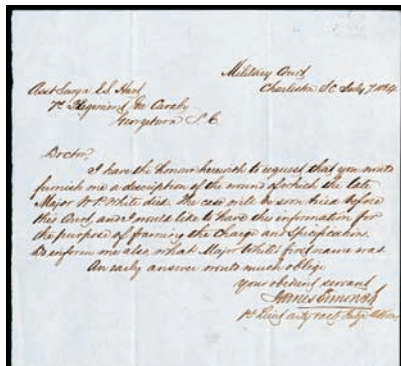 Military Court
Charleston SC July 7, 1864
Asst Surgn E.S. Hart
7th Regiment So Ca Cavly
Georgetown S.C.
Doctor,
I have the honor herewith to request that you would
furnish me a description of the wound of which the late
Major W.P. White died. The case will be soon tried before
this Court, and I would like to have the information for
the purpose of framing the Charge and Specification.
inform me also, what Major White's first name was.
An early answer would much oblige
your obedient servant
James Simons
1st Lieut